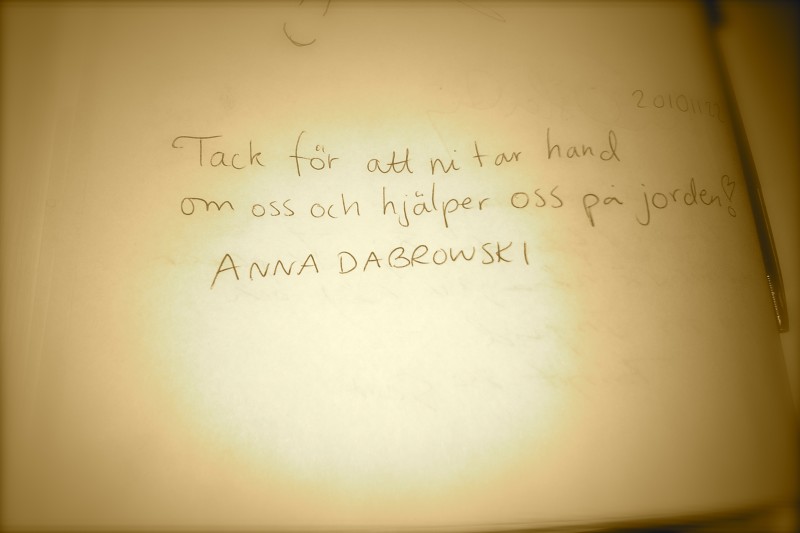 Tack för att ni tar hand
om oss och hjälper oss på jorden!
ANNA DABROWSKI